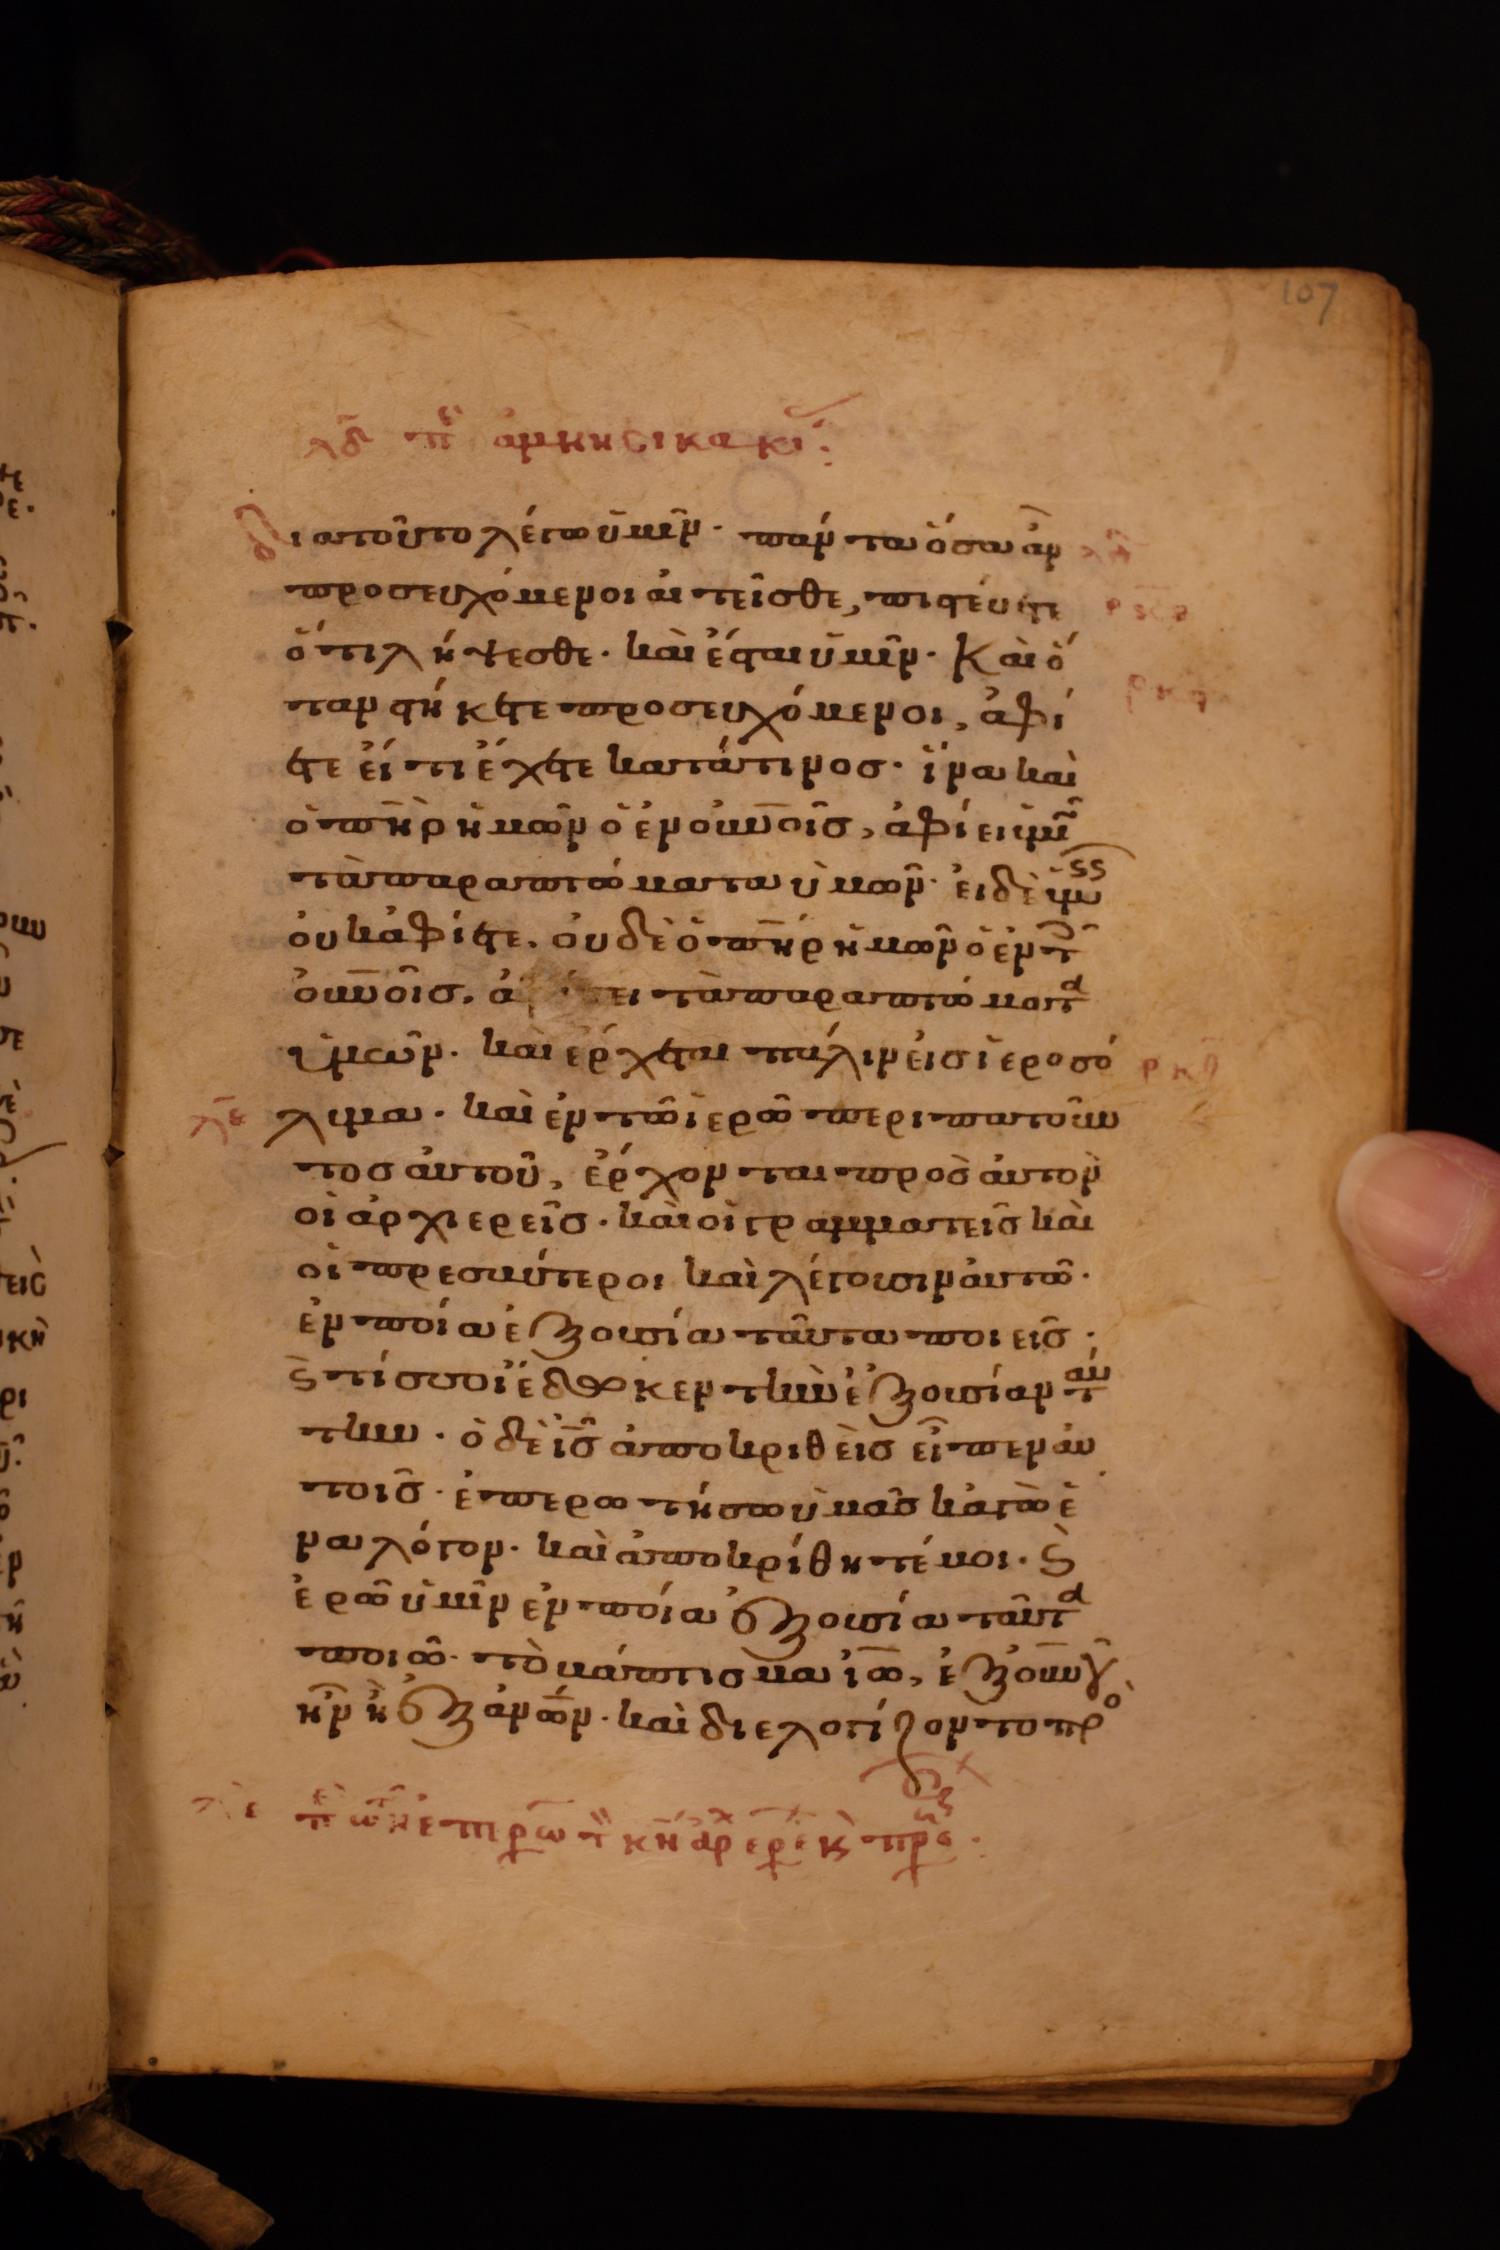 107
λδ π ἀμνησικακί
διατοῦτο λέγω ὑμῖν· πάντα ὅσα ἂν
προσευχόμενοι αἰτεῖσθε, πιστεύετε
ὅτι λήψεσθε· καὶ ἔσται ὑμῖν· Καὶ ὅ
ταν στήκετε προσευχόμενοι, ἀφί
ετε εἴ τι ἔχετε κατά τινος· ἵνα καὶ
ὁ π̅η̅ρ ἡμῶν ὁ ἐν ο̅υ̅ν̅οῖς, ἀφίει ὑμῖ
τὰ παραπτώματα ὑμῶν· εἰ δὲ ὑμ
οὐκ ἀφίετε. οὐδὲ ὁ π̅η̅ρ ἡμῶν ὁ ἐν τ
ο̅υ̅ν̅οῖς. τὰ παραπτώματα
ὑμῶν· καὶ ἔρχεται πάλιν εἰς ἱεροσό
ρκθ
λε λιμα· καὶ ἐν τῶ ἱερῶ περιπατοῦν
τος αὐτοῦ, ἔρχονται πρὸς αὐτὸν
οἱ ἀρχιερεῖς· καὶ οἱ γραμματεῖς καὶ
οἱ πρεσβύτεροι καὶ λέγουσιν αὐτῶ·
ἐν ποία ἐξουσία ταῦτα ποιεῖς·
ϛ̀ τίς σοι ἔδωκεν τὴν ἐξουσίαν ταύ
την· ὁ δὲ ι̅ς̅ ἀποκριθεὶς εἶπεν αὐ
τοῖς· ἐπερωτήσω ὑμᾶς κἀγὼ ἕ
να λόγον· καὶ ἀποκρίθητέ μοι· ϛ̀
ἐρῶ ὑμῖν ἐν ποία ἐξουσία ταῦτα
ποιῶ· τὸ βάπτισμα ι̅ω̅, ἐξ ο̅υ̅ν̅ου
ἦν ἢ ἐξ α̅ν̅ω̅ν· καὶ διελογίζοντο πρὸ
λε